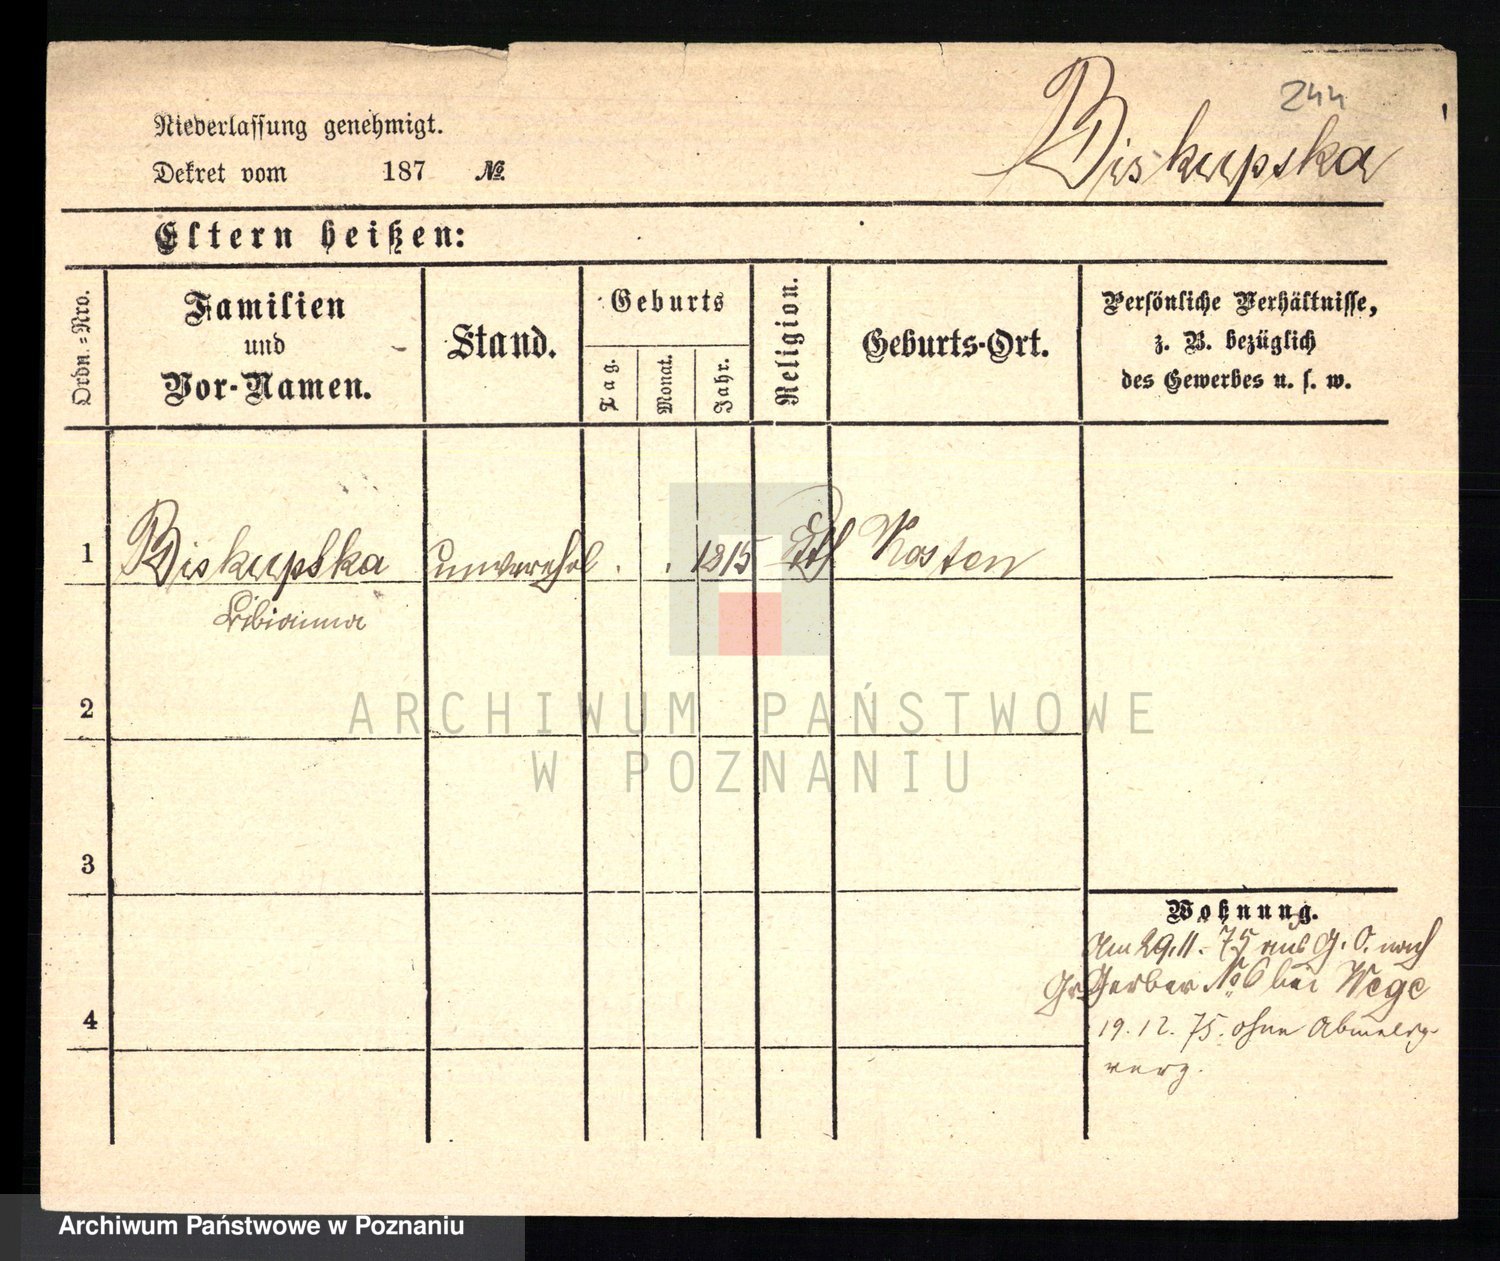 244
Biskupska
Niederlassung genehmigt.
Dekret vom 187 №.
Eltern heißen:
Ordn.=Nro.
Familien
und
Vor-Namen.
Stand.
Geburts
Tag.
Monat.
Jahr.
Religion.
Geburts-Ort.
Persönliche Verhältnisse,
z. B. bezüglich
des Gewerbes u. s. w.
1 Biskupska unverehel . . 1815 Kth Kosten
Bibianna
2
3
4
Wohnung.
Am 29.11. 75 aus G. O. nach
Gr Gerber № 6 bei Wege
19. 12. 75. ohne Abmeldg
verz.
ARCHIWUM PAŃSTWOWE
W POZNANIU
Archiwum Państwowe w Poznaniu